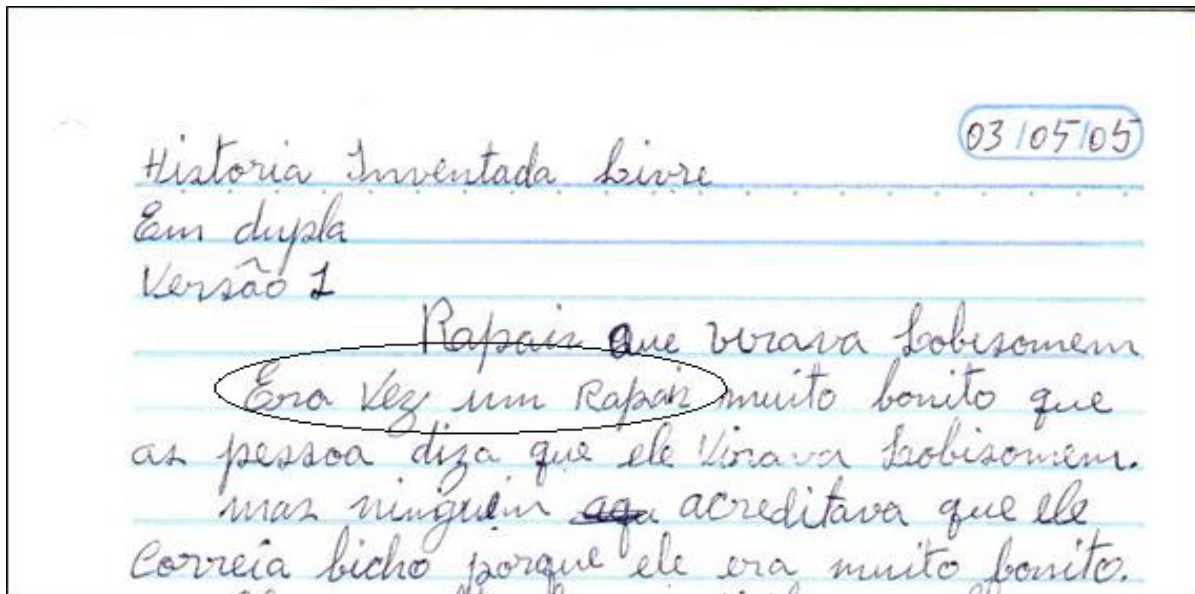 03/05/05
Historia Inventada Livre
Em dupla
Versão 1
Rapais que virava Lobisomem
Era Vez um Rapaz muito bonito que
as pessoa diza que ele Virava Lobisomem.
mas ninguém acreditava que ele
Correia bicho porque ele era muito bonito.